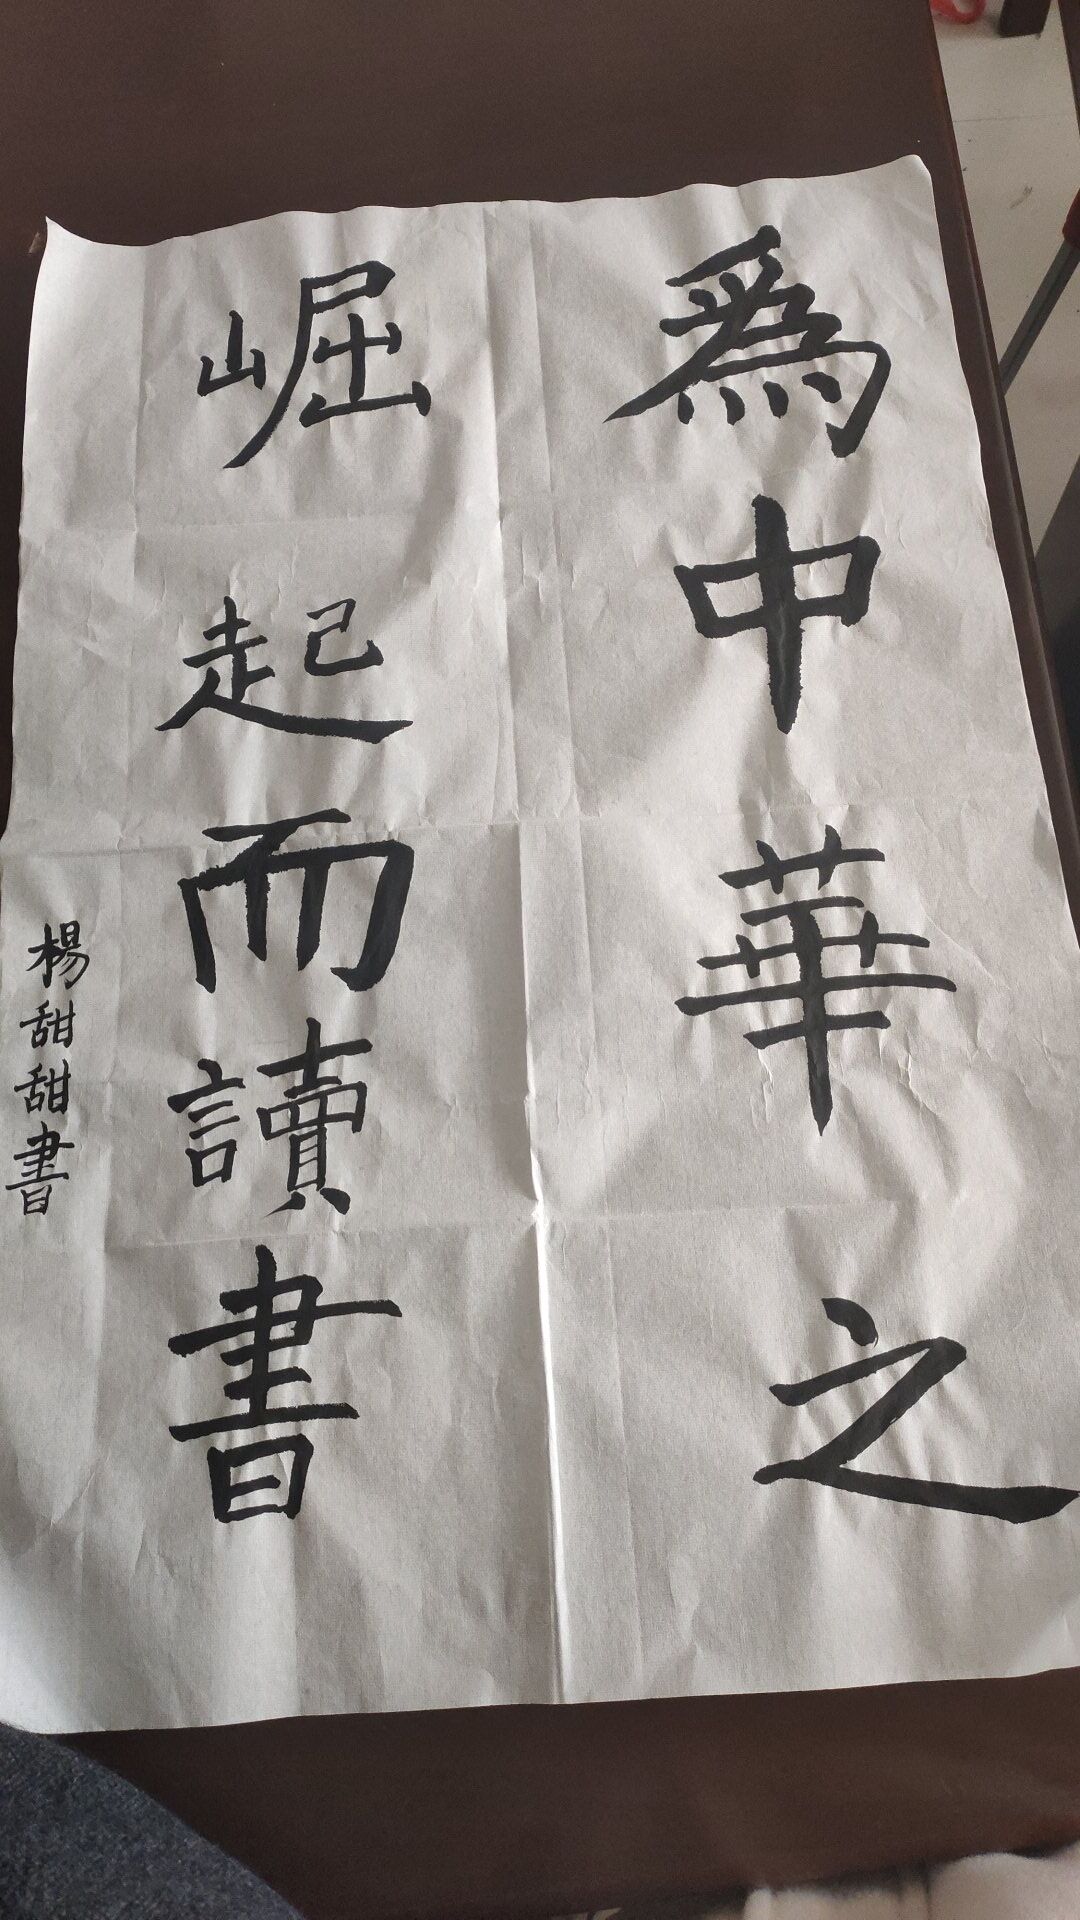 爲中華之
崛起而讀書
楊甜甜書